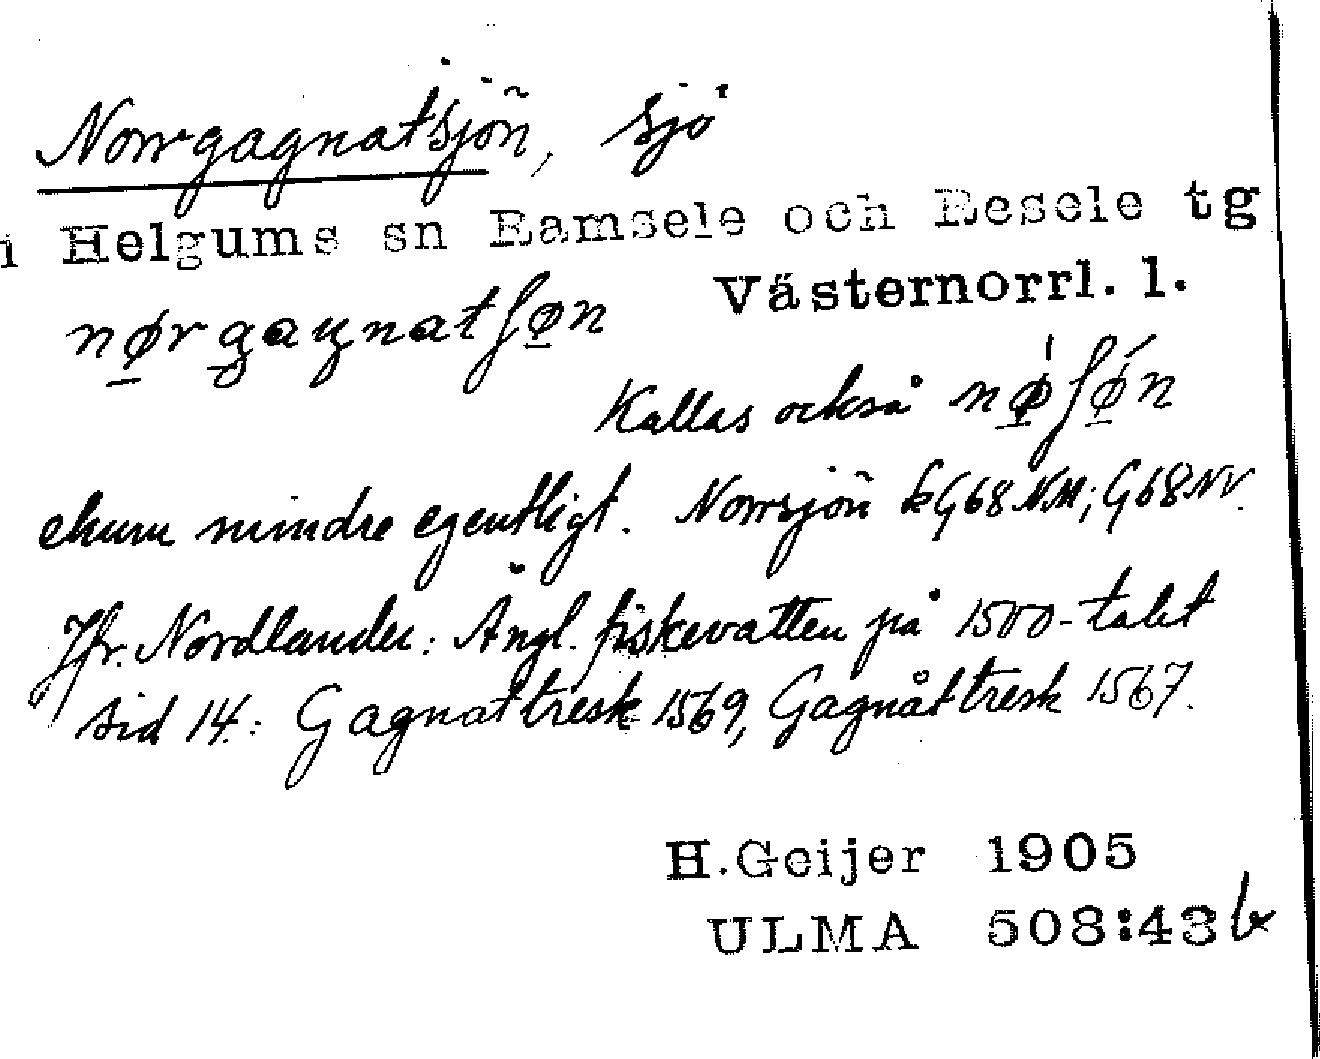 Norrgagnatsjön, sjö
i Helgums sn Ramsele och Resele tg
Västernorrl. l.
nørgagnatʃøn
Kallas också nøʃøn
ehuru mindre egentligt. Norrsjön
Jfr. Nordlander: Ångl. fiskevatten på 1500-talet
sid 14.: Gagnattresk 1569, Gagnåttresk 1567.
H.Geijer 1905
ULMA 508:43 b